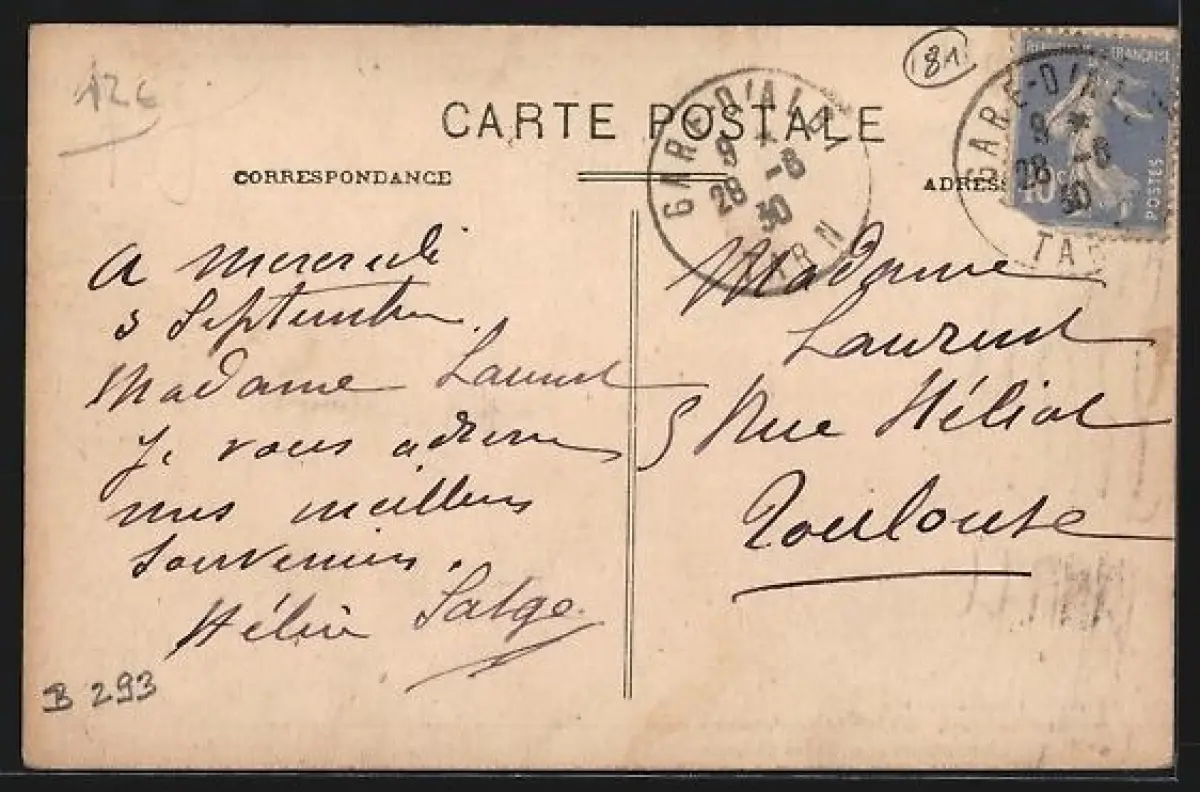 12€
81
CARTE POSTALE
CORRESPONDANCE
ADRESS
GARE-D'ALBI
9 *
28 -8
30
TARN
GARE-D'AL
9 *
28 -8
30
TAR
FRANÇAISE
POSTES
40 C
A mercredi
3 Septembre
Madame Laurent
Je vous adresse
mes meilleurs
souvenirs.
Salgé
B 293
Madame
Laurent
5 Rue Héliot
Toulouse